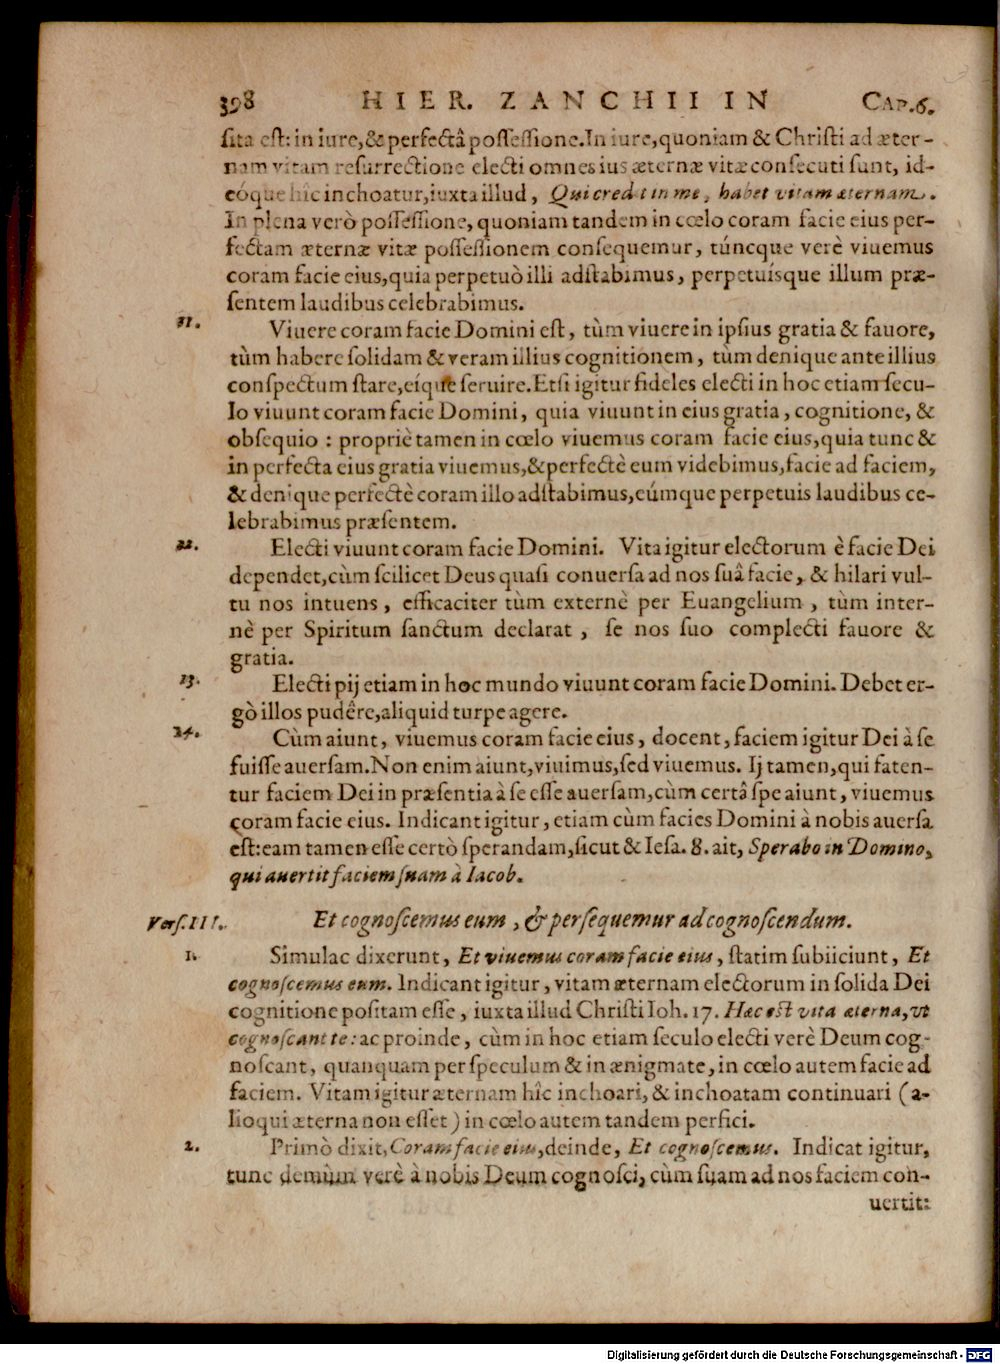 398 HIER. ZANCHII IN CAP. 6.
sita est: in iure, & perfectâ possessione. In iure, quoniam & Christi ad æter-
nam vitam resurrectione electi omnes ius æternæ vitæ consecuti sunt, id-
eóque hîc inchoatur, iuxta illud, Qui credit in me, habet vitam æternam.
In plena verò possessione, quoniam tandem in cœlo coram facie eius per-
fectam æternæ vitæ possessionem consequemur, túncque verè viuemus
coram facie eius, quia perpetuò illi adstabimus, perpetuísque illum præ-
sentem laudibus celebrabimus.
11. Viuere coram facie Domini est, tùm viuere in ipsius gratia & fauore,
tùm habere solidam & veram illius cognitionem, tùm denique ante illius
conspectum stare, eíque seruire. Etsi igitur fideles electi in hoc etiam secu-
lo viuunt coram facie Domini, quia viuunt in eius gratia, cognitione, &
obsequio: propriè tamen in cœlo viuemus coram facie eius, quia tunc &
in perfecta eius gratia viuemus, & perfectè eum videbimus, facie ad faciem,
& denique perfectè coram illo adstabimus, eúmque perpetuis laudibus ce-
lebrabimus præsentem.
12. Electi viuunt coram facie Domini. Vita igitur electorum è facie Dei
dependet, cùm scilicet Deus quasi conuersa ad nos suâ facie, & hilari vul-
tu nos intuens, efficaciter tùm externè per Euangelium, tùm inter-
nè per Spiritum sanctum declarat, se nos suo complecti fauore &
gratia.
13. Electi pij etiam in hoc mundo viuunt coram facie Domini. Debet er-
gò illos pudêre, aliquid turpe agere.
14. Cùm aiunt, viuemus coram facie eius, docent, faciem igitur Dei à se
fuisse auersam. Non enim aiunt, viuimus, sed viuemus. Ij tamen, qui faten-
tur faciem Dei in præsentia à se esse auersam, cùm certâ spe aiunt, viuemus
coram facie eius. Indicant igitur, etiam cùm facies Domini à nobis auersa
est: eam tamen esse certò sperandam, sicut & Iesa. 8. ait, Sperabo in Domino,
qui auertit faciem suam à Iacob.
Vers. III. Et cognoscemus eum, & persequemur ad cognoscendum.
1. Simulac dixerunt, Et viuemus coram facie eius, statim subiiciunt, Et
cognoscemus eum. Indicant igitur, vitam æternam electorum in solida Dei
cognitione positam esse, iuxta illud Christi Ioh. 17. Hæc est vita æterna, vt
cognoscant te: ac proinde, cùm in hoc etiam seculo electi verè Deum cog-
noscant, quanquam per speculum & in ænigmate, in cœlo autem facie ad
faciem. Vitam igitur æternam hîc inchoari, & inchoatam continuari (a-
lioqui æterna non esset) in cœlo autem tandem perfici.
2. Primò dixit, Coram facie eius, deinde, Et cognoscemus. Indicat igitur,
tunc demùm verè à nobis Deum cognosci, cùm suam ad nos faciem con-
uertit:
Digitalisierung gefördert durch die Deutsche Forschungsgemeinschaft - DFG